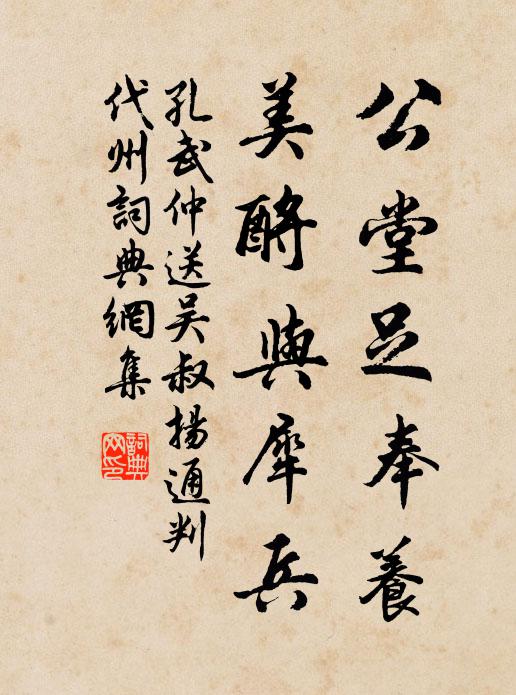 公堂足奉養
美酧與犀兵
孔武仲送吴叔揚通判
代州詞典網集
詞典网印